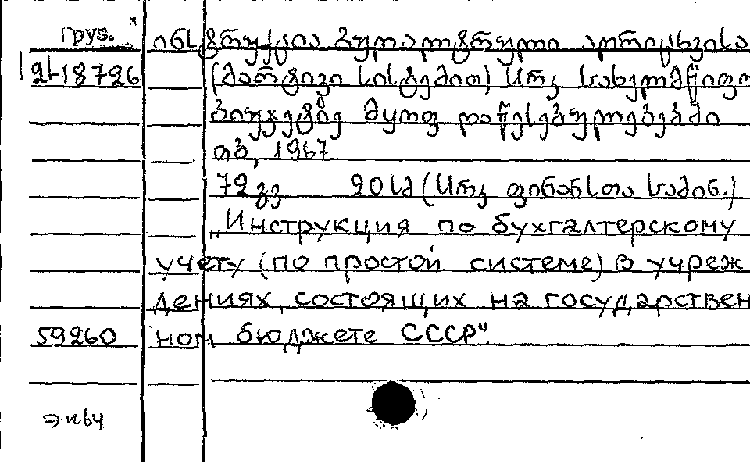 груз.
ინსტრუქცია ბუღალტრული აღრიცხვისა
21-18726 (მარტივი სისტემით) სსრკ სახელმწიფო
ბიუჯეტზე მყოფ დაწესებულებებში
თბ., 1967
72 გვ 20 სმ (სსრკ ფინანსთა სამინ.)
„Инструкция по бухгалтерскому
учету (по простой системе) в учреж
дениях, состоящих на государствен
59260 ном бюджете СССР".